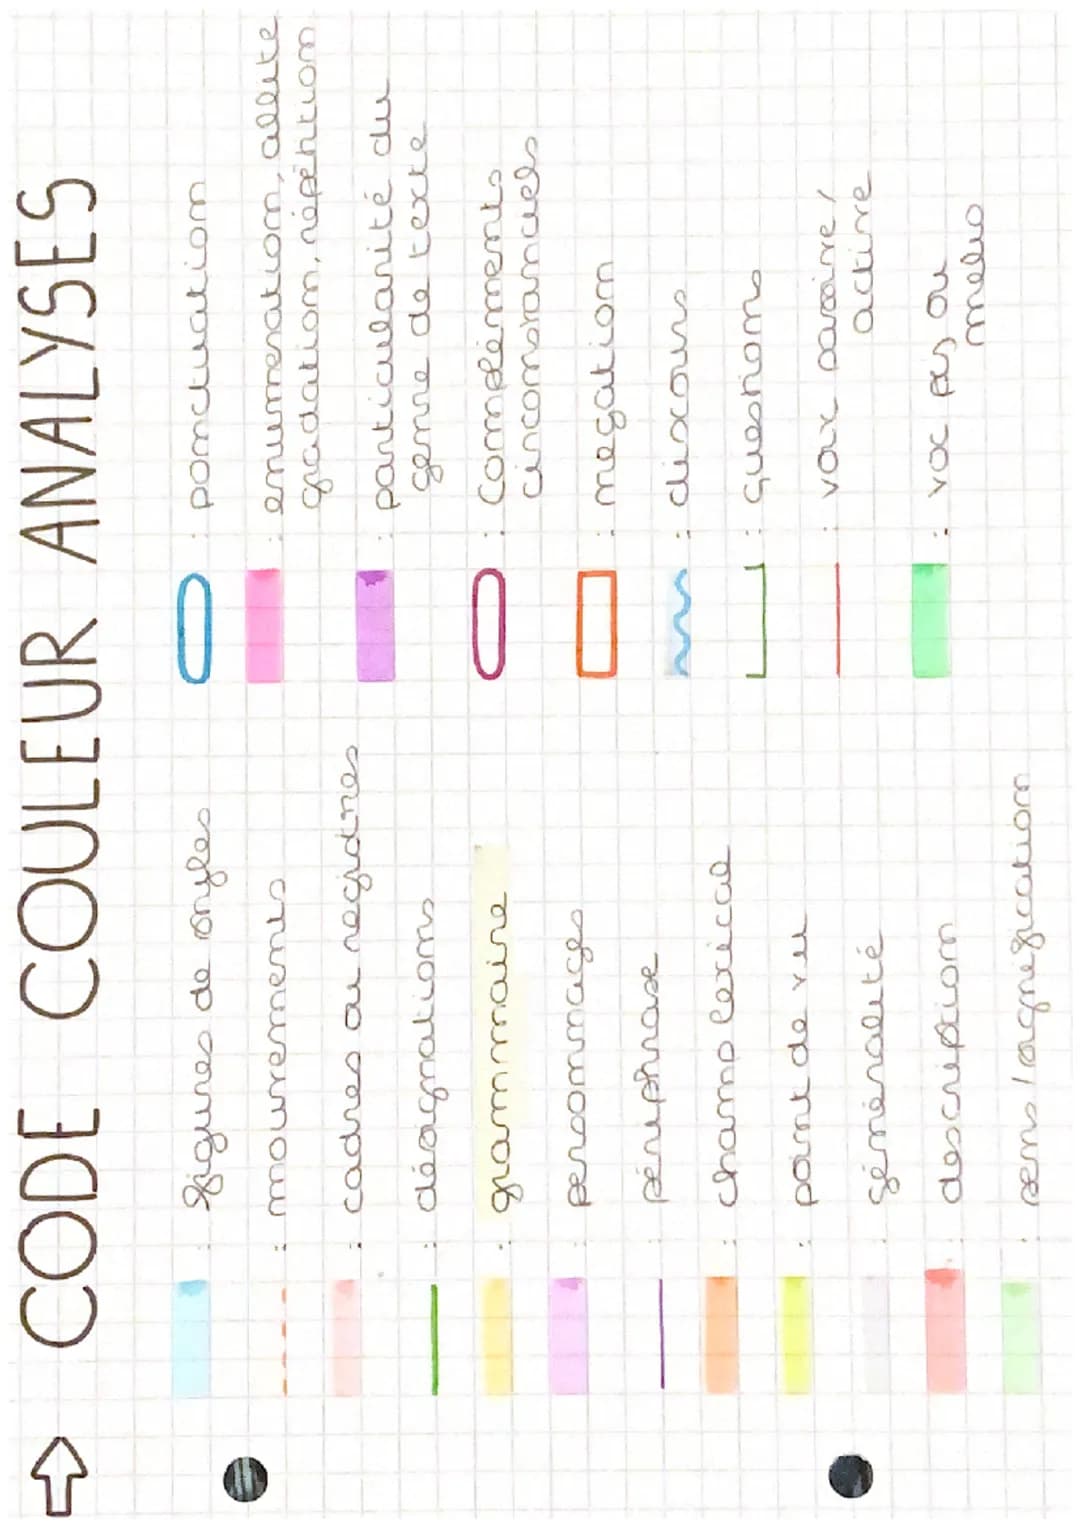 CODE COULEUR ANALYSES
: figures de styles
: mouvements
: cadres ou registres
: désignations
: grammaire
: personnages
: périphrase
: champ lexical
: point de vu
: généralité
: description
: sens / signification
: ponctuation
: enumeration, allite
gradation, répétition
: particularité du
genre de texte
: Compléments
circonstanciels
: negation
: discours
: questions
: voix passive /
active
: voc pej ou
melio